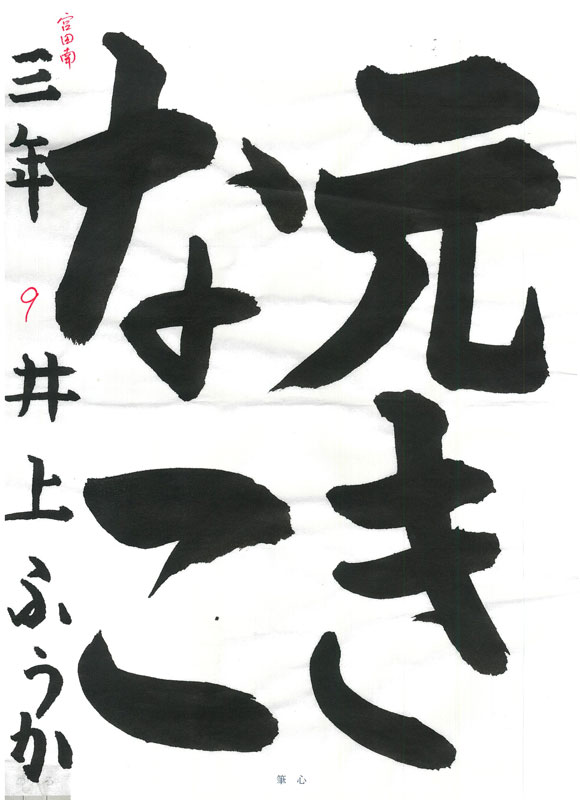 元き
なこ
宮田南
三年 9 井上ふうか
筆心